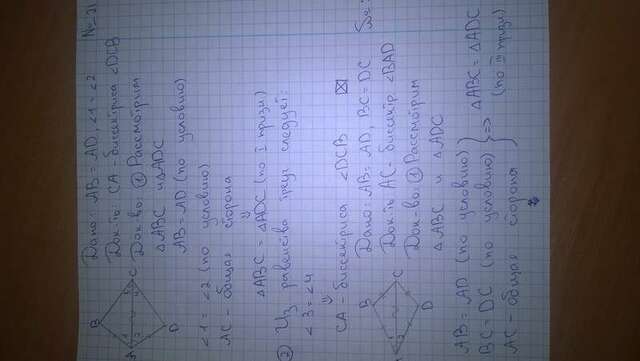 Дано: AB = AD, ∠1 = ∠2
Док-ть: CA - биссектриса ∠DCB
Док-во: ① Рассмотрим
△ABC и △ADC
AB = AD (по условию)
∠1 = ∠2 (по условию)
AC - общая сторона
⇓
△ABC = △ADC (по I призн)
② Из равенства треуг следует:
∠3 = ∠4
⇓
CA - биссектриса ∠DCB
Дано: AB = AD, BC = DC
Док-ть AC - биссектр. ∠BAD
Док-во: ① Рассмотрим
△ABC и △ADC
AB = AD (по условию)
BC = DC (по условию) } => △ABC = △ADC
AC - общая сторона (по III призн)
B
A
C
D
B
A
C
D